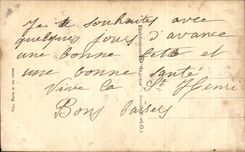 Je te souhaites avec
quelques jours d'avance
une bonne fete et
une bonne santé
Vive la St Henri
Bons baisers